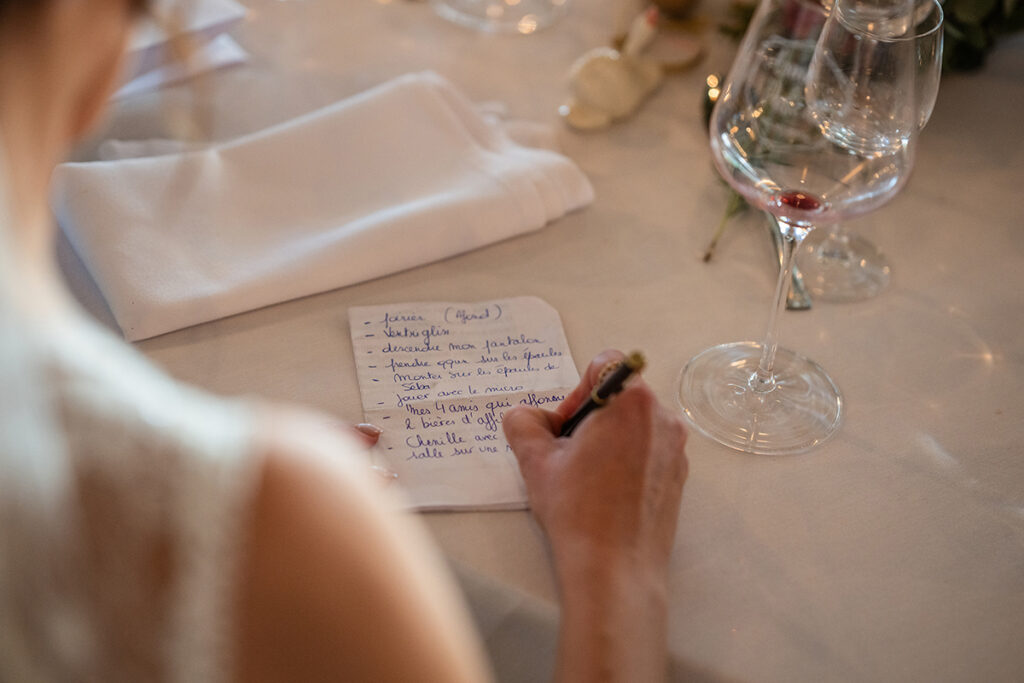 - ventriglin
- descendre mon pantalon
- prendre qqun sur les épaules
- monter sur les épaules de
Seba
- jouer avec le micro
- Mes 4 amis qui affonen
2 bières d'affil
- Chenille avec
salle sur une